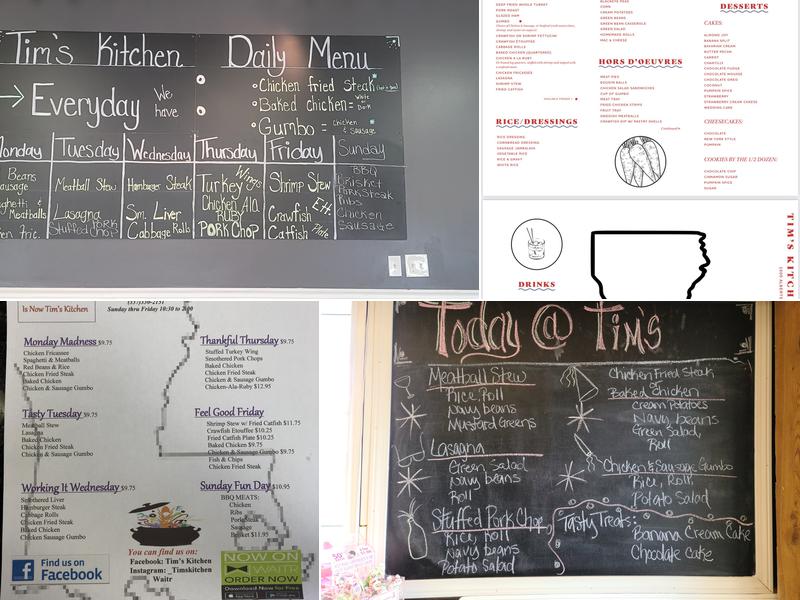 Tim's Kitchen Daily Menu
Everyday We have
Chicken fried steak
Baked chicken = White Dark
Gumbo = chicken & Sausage
Monday Tuesday Wednesday Thursday Friday Sunday
Beans
Sausage
Spaghetti & Meatballs
Meatball Stew
Lasagna
Stuffed Pork Chop
Hamburger Steak
Sm. Liver
Cabbage Rolls
Turkey Wings
Chicken Ala. RUBY
PORK CHOP
Shrimp Stew
Crawfish Ett.
Catfish Plate
BBQ
Brisket
Pork Steak
Ribs
Chicken
Sausage
DEEP FRIED WHOLE TURKEY
PORK ROAST
GLAZED HAM
GUMBO
CRAWFISH OR SHRIMP FETTUCINI
CRAWFISH ETOUFFEE
CABBAGE ROLLS
BAKED CHICKEN (QUARTERED)
CHICKEN A LA RUBY
CHICKEN FRICASSEE
LASAGNA
SHRIMP STEW
FRIED CATFISH
RICE/DRESSINGS
RICE DRESSING
CORNBREAD DRESSING
SAUSAGE JAMBALAYA
VEGETABLE RICE
RICE & GRAVY
WHITE RICE
BLACKEYE PEAS
CORN
CREAM POTATOES
GREEN BEANS
GREEN BEAN CASSEROLE
GREEN SALAD
HOMEMADE ROLLS
MAC & CHEESE
HORS D'OEUVRES
MEAT PIES
BOUDIN BALLS
CHICKEN SALAD SANDWICHES
CUP OF GUMBO
MEAT TRAY
FRIED CHICKEN STRIPS
FRUIT TRAY
SWEDISH MEATBALLS
CRAWFISH DIP W/ PASTRY SHELLS
DESSERTS
CAKES:
ALMOND JOY
BANANA SPLIT
BAVARIAN CREAM
BUTTER PECAN
CARROT
CHANTILLI
CHOCOLATE FUDGE
CHOCOLATE MOUSSE
CHOCOLATE OREO
COCONUT
PUMPKIN SPICE
STRAWBERRY
STRAWBERRY CREAM CHEESE
WEDDING CAKE
CHEESECAKES:
CHOCOLATE
NEW YORK STYLE
PUMPKIN
COOKIES BY THE 1/2 DOZEN:
CHOCOLATE CHIP
CINNAMON SUGAR
PUMPKIN SPICE
SUGAR
DRINKS
TIM'S KITCH
Is Now Tim's Kitchen
(337)330-2131
Sunday thru Friday 10:30 to 2:00
Monday Madness $9.75
Chicken Fricassee
Spaghetti & Meatballs
Red Beans & Rice
Chicken Fried Steak
Baked Chicken
Chicken & Sausage Gumbo
Tasty Tuesday $9.75
Meatball Stew
Lasagna
Baked Chicken
Chicken Fried Steak
Chicken & Sausage Gumbo
Working It Wednesday $9.75
Smothered Liver
Hamburger Steak
Cabbage Rolls
Chicken Fried Steak
Baked Chicken
Chicken & Sausage Gumbo
Thankful Thursday $9.75
Stuffed Turkey Wing
Smothered Pork Chops
Baked Chicken
Chicken Fried Steak
Chicken & Sausage Gumbo
Chicken-Ala-Ruby $12.95
Feel Good Friday
Shrimp Stew w/ Fried Catfish $11.75
Crawfish Etouffee $10.25
Fried Catfish Plate $10.25
Baked Chicken $9.75
Chicken & Sausage Gumbo $9.75
Fish & Chips
Chicken Fried Steak
Sunday Fun Day $10.95
BBQ MEATS:
Chicken
Ribs
Pork Steak
Sausage
Brisket $11.95
You can find us on:
Facebook: Tim's Kitchen
Instagram: _Timskitchen
Waitr
Find us on
Facebook
NOW ON
WAITR
ORDER NOW
Download Now for Free
Today @ Tim's
Meatball Stew
Rice, Roll
Navy beans
Mustard Greens
Lasagna
Green Salad
Navy beans
Roll
Stuffed Pork Chop
Rice, Roll
Navy beans
Potato Salad
Chicken Fried Steak
or
Baked Chicken
Cream Potatoes
Navy beans
Green Salad,
Roll
Chicken & Sausage Gumbo
Rice, Roll,
Potato Salad
Tasty Treats:
Banana Cream Cake
Chocolate Cake